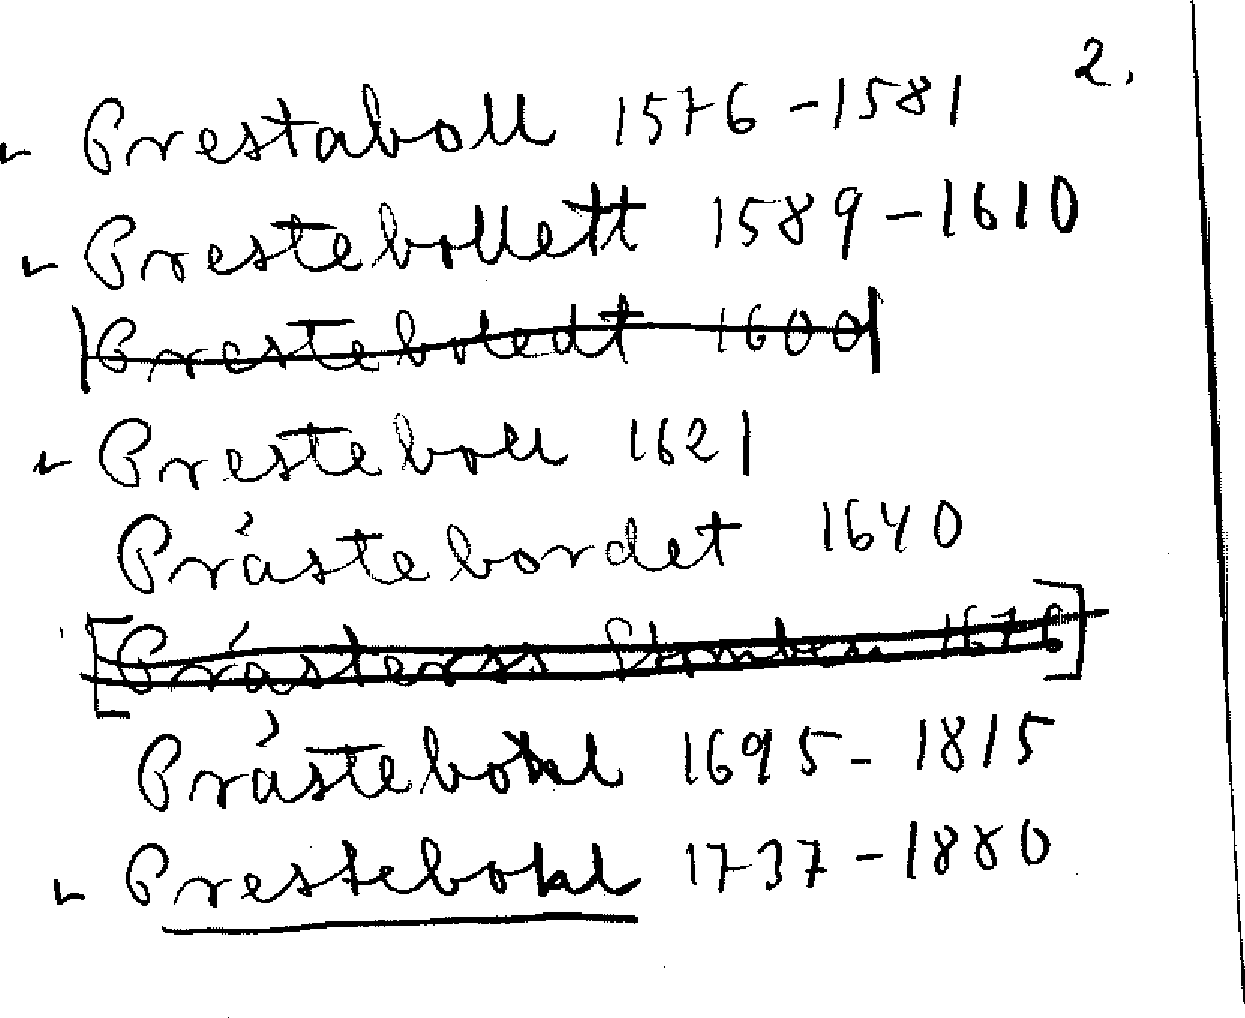 2.
Prestaboll 1576-1581
Prestebollett 1589-1610
Presteboledt 1600
Presteboll 1621
Prástebordet 1640
1676
Prástebohl 1695-1815
Prestebohl 1737-1880